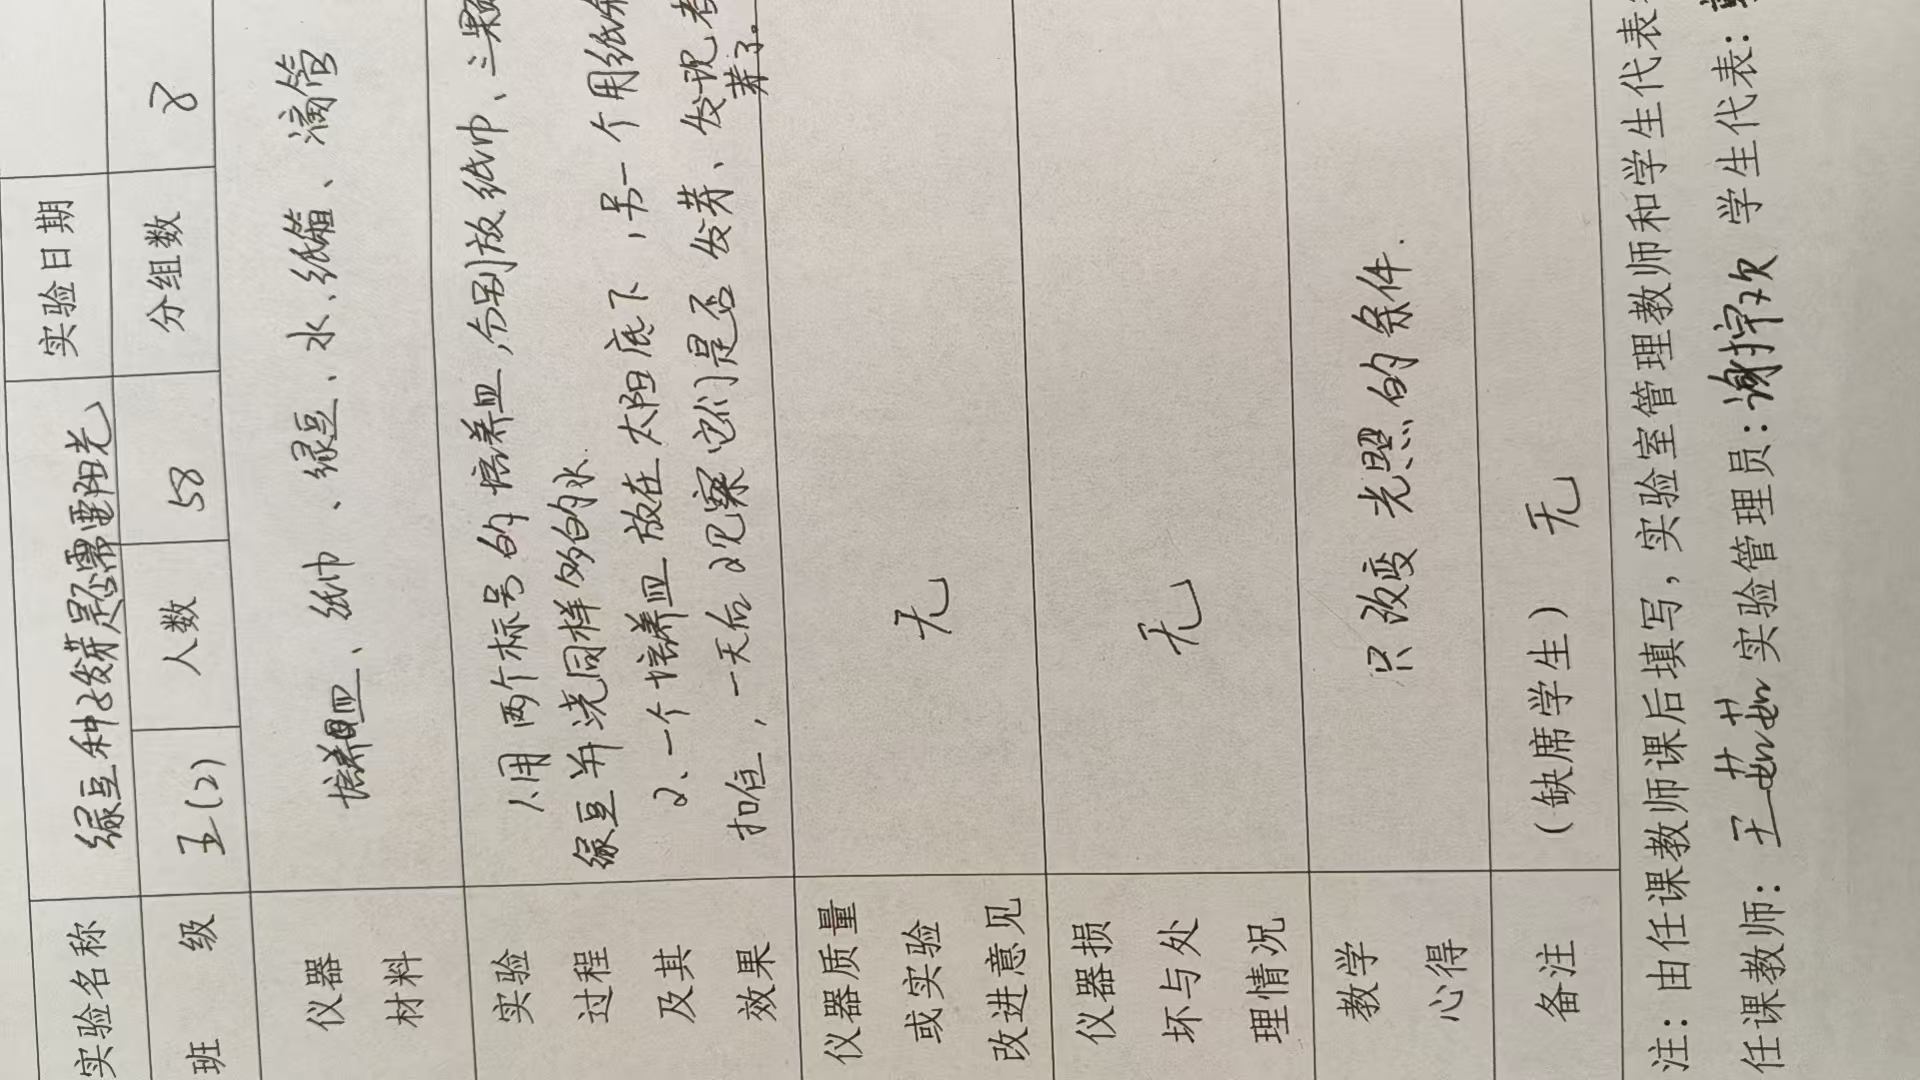 实验名称 绿豆种子发芽是否需要阳光 实验日期
班级 五(2) 人数 58 分组数 8
仪器材料 培养皿、纸巾、绿豆、水、纸箱、滴管
实验过程及其效果
1.用两个标号的培养皿,分别放纸巾、三颗
绿豆并浇同样多的水.
2、一个培养皿放在太阳底下,另一个用纸
扣住,一天后观察它们是否发芽、发现者
芽了。
仪器质量或实验改进意见 无
仪器损坏与处理情况 无
教学心得 只改变光照的条件.
备注 (缺席学生) 无
注:由任课教师课后填写,实验室管理教师和学生代表
任课教师:王茹茹 实验管理员:谢宇欢 学生代表: